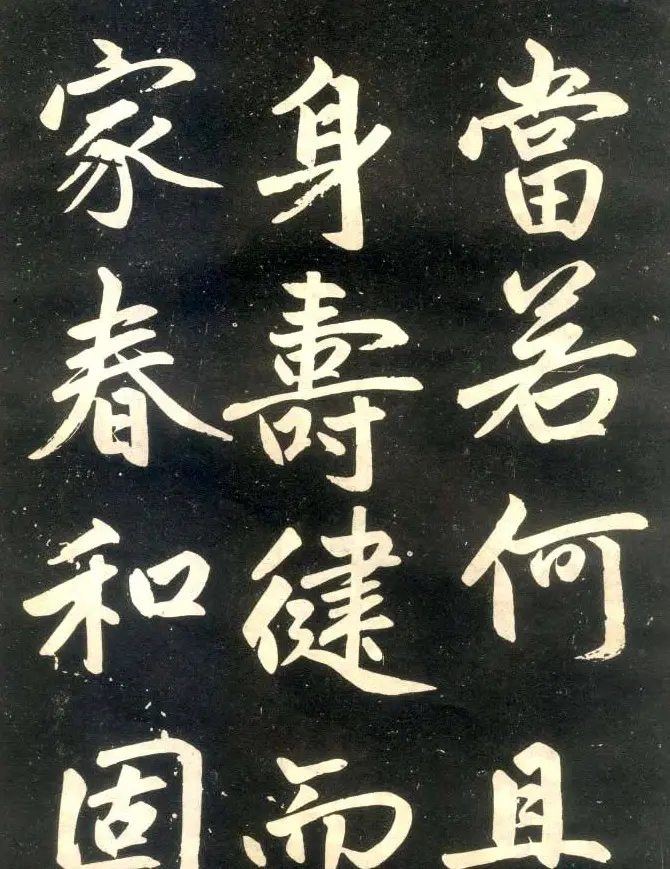 當若何且
身壽健而
家春和固